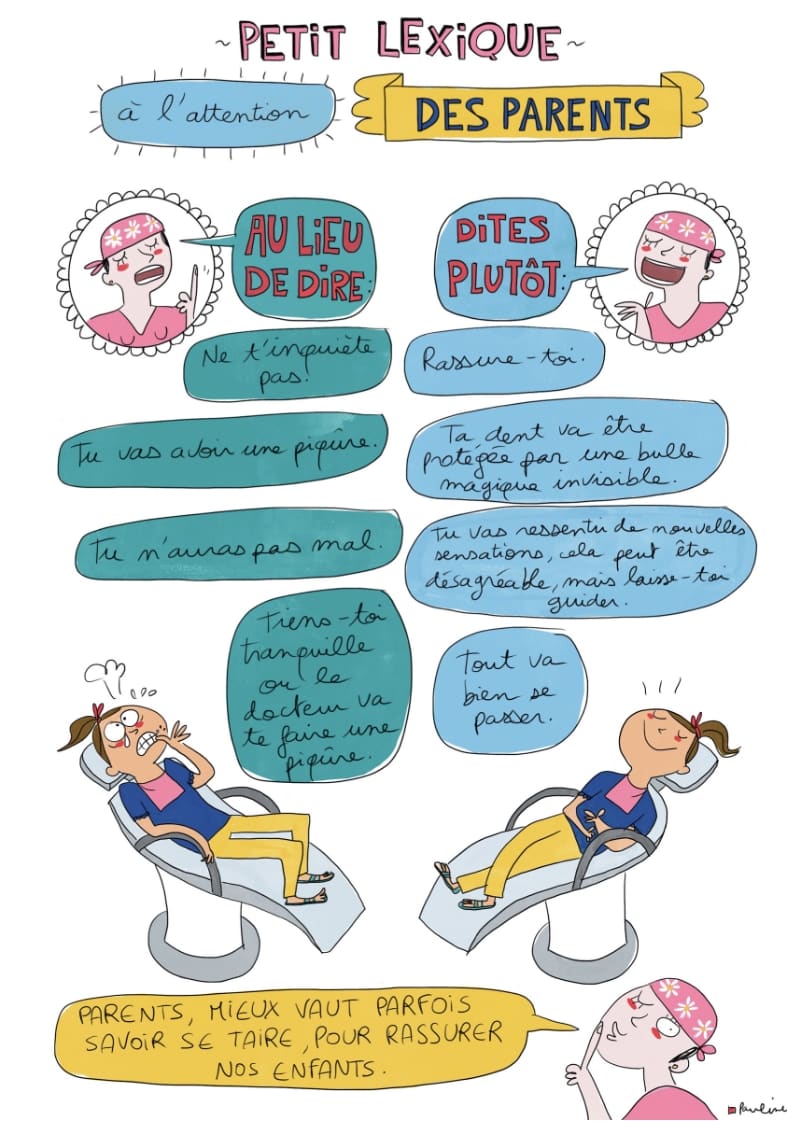 ~PETIT LEXIQUE~
à l'attention
DES PARENTS
AU LIEU
DE DIRE:
DITES
PLUTÔT:
Ne t'inquiète
pas.
Rassure-toi.
Tu vas avoir une piqûre.
Ta dent va être
protégée par une bulle
magique invisible.
Tu n'auras pas mal.
Tu vas ressentir de nouvelles
sensations, cela peut être
désagréable, mais laisse-toi
guider.
Tiens-toi
tranquille
ou le
docteur va
te faire une
piqûre.
Tout va
bien se
passer.
PARENTS, MIEUX VAUT PARFOIS
SAVOIR SE TAIRE, POUR RASSURER
NOS ENFANTS.
Pauline